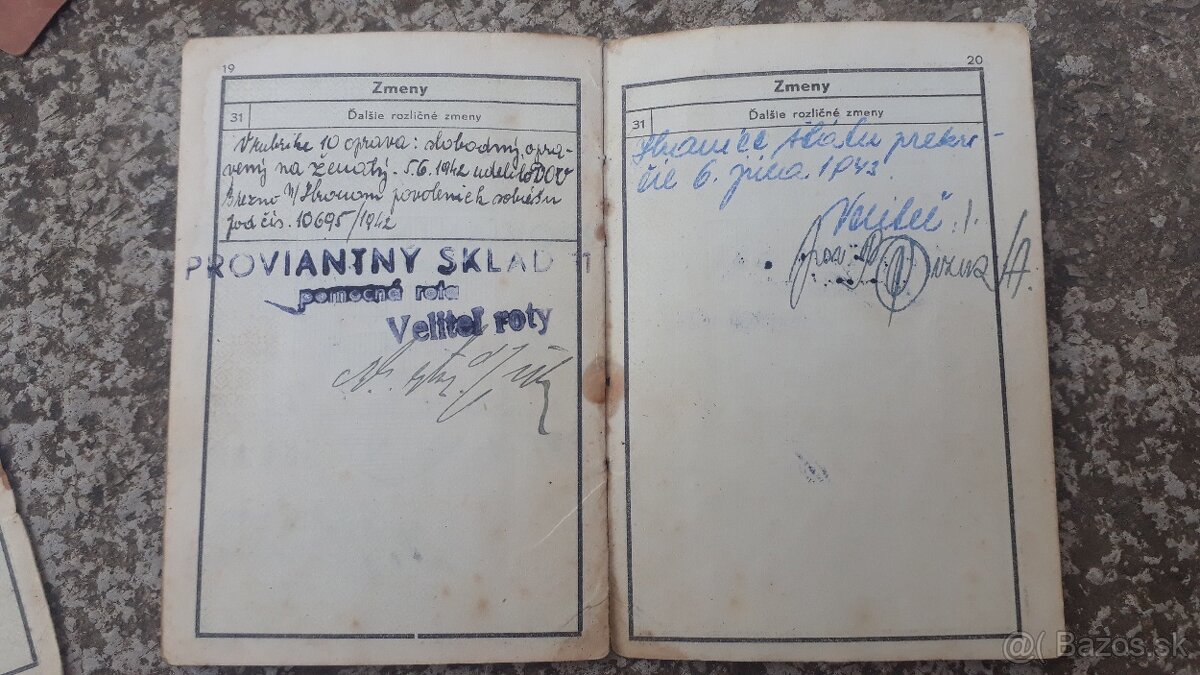 19
Zmeny
31 Ďalšie rozličné zmeny
V rubrike 10 oprava: slobodný opra-
vený na ženatý. 5.6.1942 udelil OVOV
Brezno n/Hronom povolenie k sobášu
pod čís. 10695/1942
PROVIANTNÝ SKLAD 11
pomocná rota
Veliteľ roty
20
Zmeny
31 Ďalšie rozličné zmeny
Hranice štátu prekro-
čil 6. júna 1943.
Veliteľ:
@( Bazos.sk